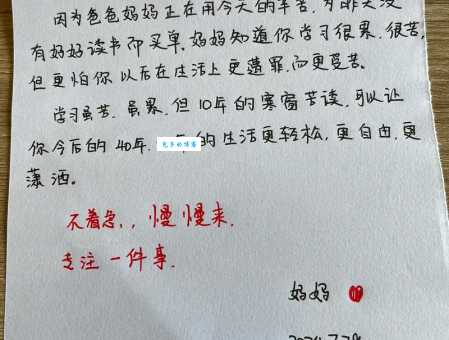 因为爸爸妈妈正在用今天的辛苦,为昨天没
有好好读书而买单,妈妈知道你学习很累,很苦,
但更怕你以后在生活上更遭罪,而更受苦。
学习虽苦,虽累,但10年的寒窗苦读,可以让
你今后的40年, 年的生活更轻松,更自由,更
潇洒。
不着急,,慢慢来,
专注一件事,
妈妈